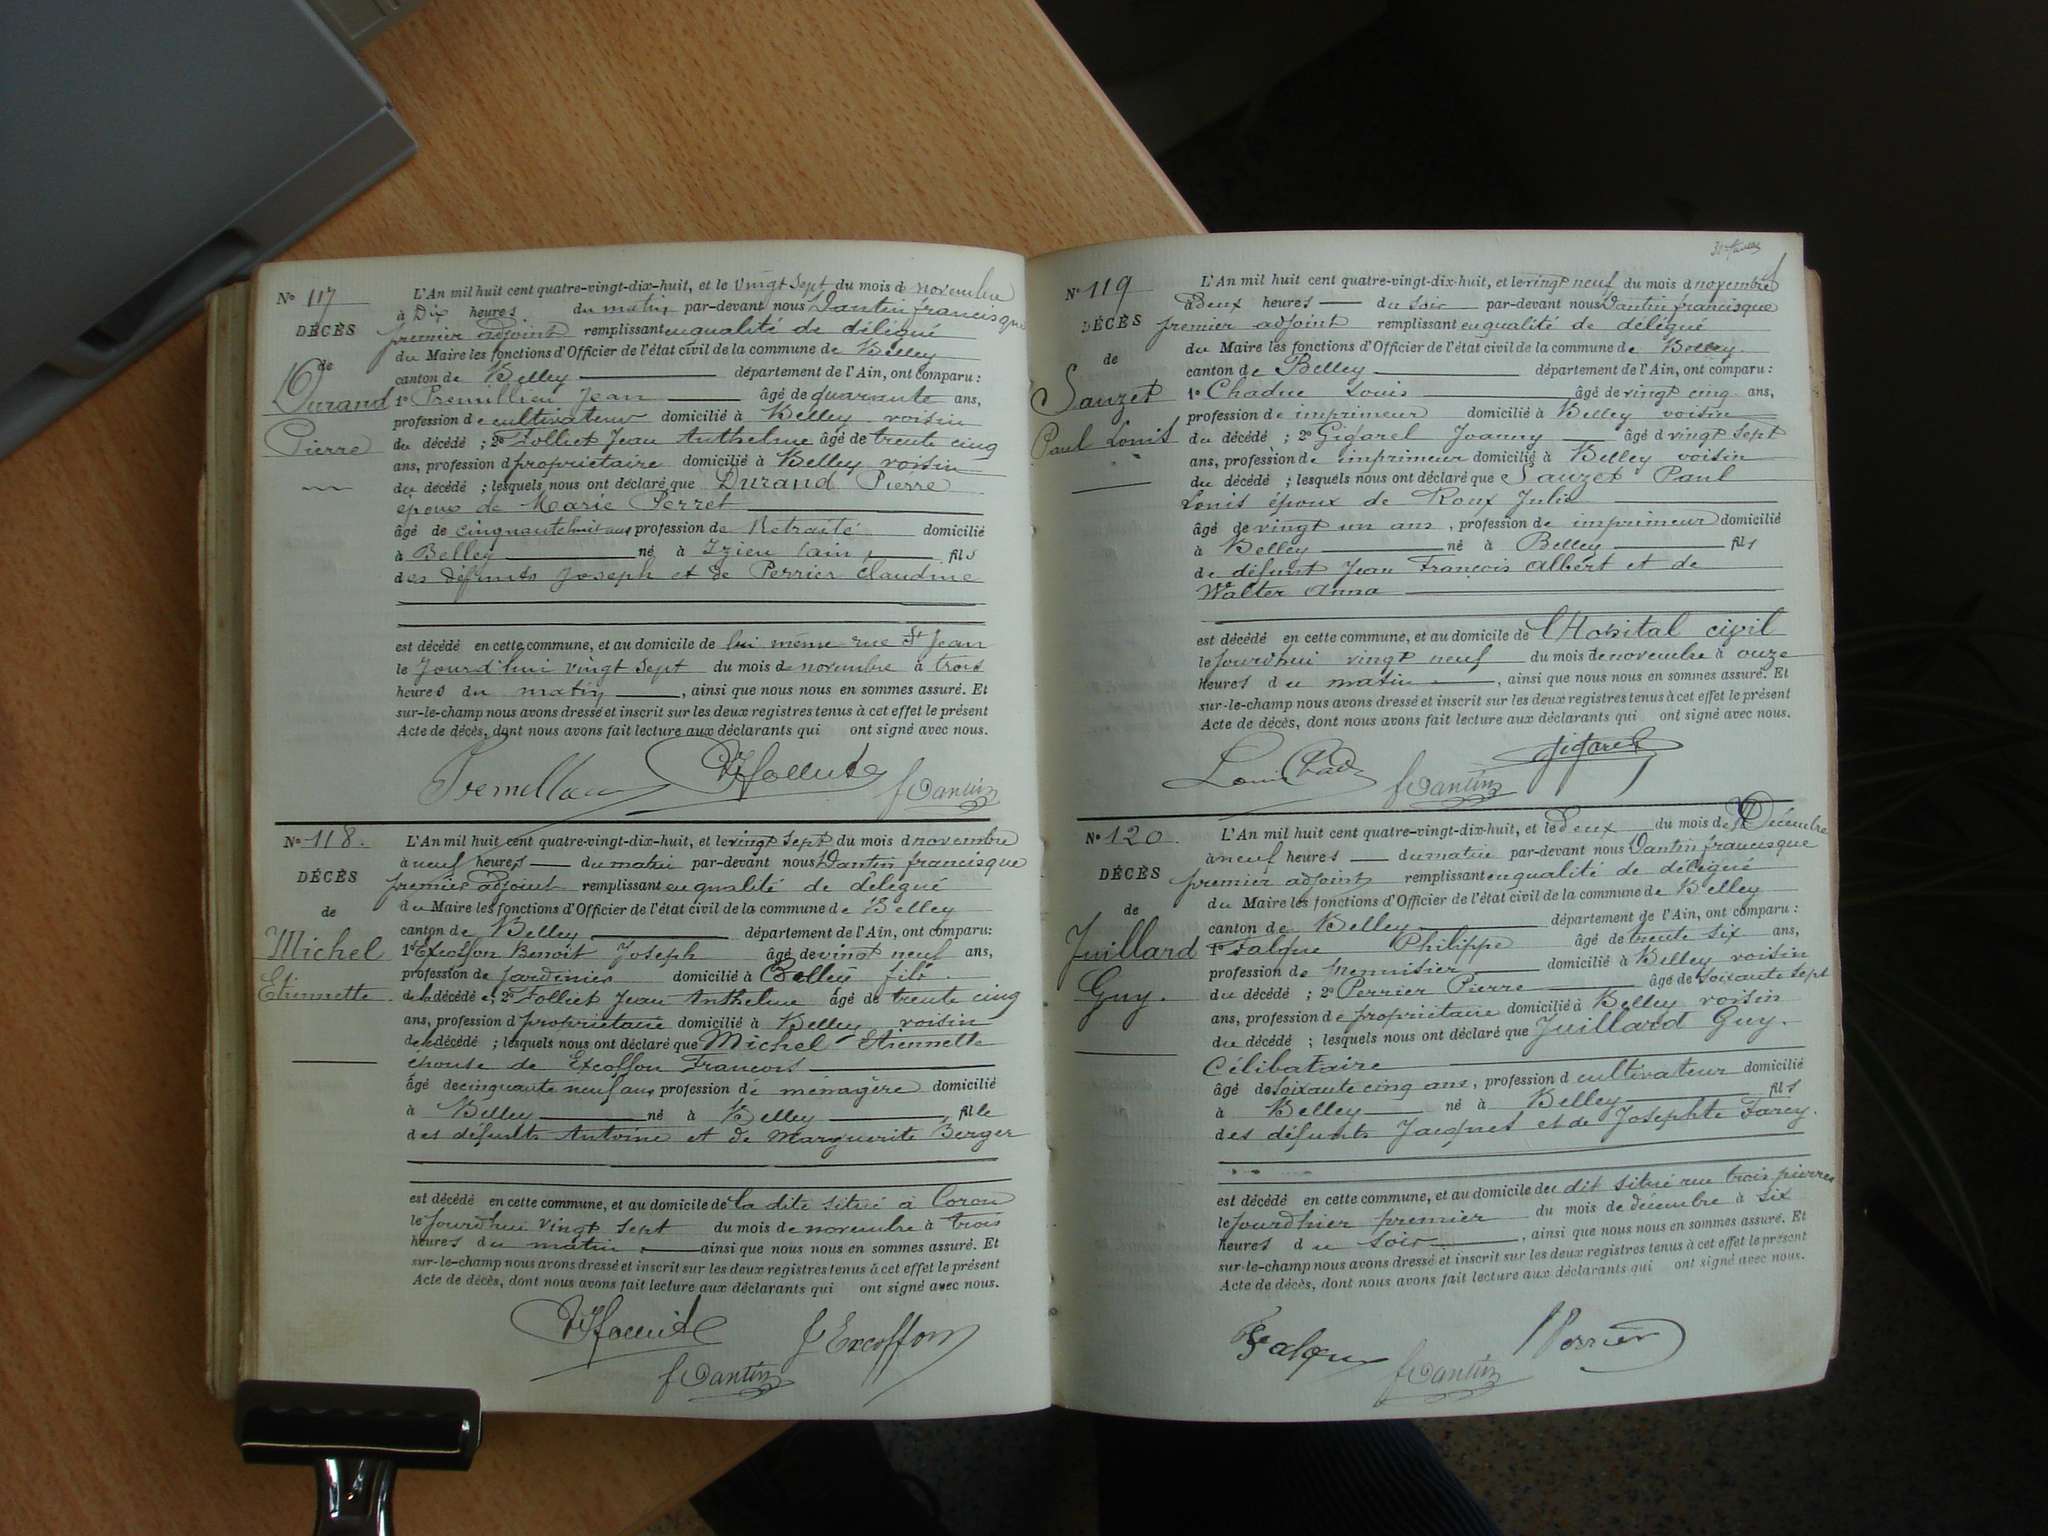 N° 117
DÉCÈS
de
Durand
Pierre
L'An mil huit cent quatre-vingt-dix-huit, et le vingt sept du mois d novembre
à Dix heures du matin par-devant nous Dantin francisque
premier adjoint remplissant en qualité de délégué
du Maire les fonctions d'Officier de l'état civil de la commune de Belley
canton de Belley département de l'Ain, ont comparu :
1° Tremillieu Jean âgé de quarante ans,
profession de cultivateur domicilié à Belley voisin
du décédé ; 2° Folliet Jean Anthelme âgé de trente cinq
ans, profession d propriétaire domicilié à Belley voisin
du décédé ; lesquels nous ont déclaré que Durand Pierre
époux de Marie Perret
âgé de cinquante huit ans profession de Retraité domicilié
à Belley né à Izieu (ain) fils
des défunts Joseph et de Perrier Claudine
est décédé en cette commune, et au domicile de lui même rue St Jean
le Jourd'hui vingt sept du mois de novembre à trois
heures du matin, ainsi que nous nous en sommes assuré. Et
sur-le-champ nous avons dressé et inscrit sur les deux registres tenus à cet effet le présent
Acte de décès, dont nous avons fait lecture aux déclarants qui ont signé avec nous.
f Dantin
N° 118.
DÉCÈS
de
Michel
Etiennette
L'An mil huit cent quatre-vingt-dix-huit, et le vingt sept du mois d novembre
à neuf heures du matin par-devant nous Dantin francisque
premier adjoint remplissant en qualité de délégué
du Maire les fonctions d'Officier de l'état civil de la commune de Belley
canton de Belley département de l'Ain, ont comparu:
1° Excoffon Benoit Joseph âgé de vingt neuf ans,
profession de Jardinier domicilié à Belley fils
de la décédée; 2° Folliet Jean Anthelme âgé de trente cinq
ans, profession d propriétaire domicilié à Belley voisin
de la décédé ; lesquels nous ont déclaré que Michel Etiennette
épouse de Excoffon François
âgé de cinquante neuf ans profession de ménagère domicilié
à Belley né à Belley fille
des défunts Antoine et de Marguerite Berger
est décédé en cette commune, et au domicile de la dite situé à Coron
le Jourdhui vingt sept du mois de novembre à trois
heures du matin, ainsi que nous nous en sommes assuré. Et
sur-le-champ nous avons dressé et inscrit sur les deux registres tenus à cet effet le présent
Acte de décès, dont nous avons fait lecture aux déclarants qui ont signé avec nous.
J Excoffon
f Dantin
N° 119
DÉCÈS
de
Sauzet
Paul Louis
L'An mil huit cent quatre-vingt-dix-huit, et le vingt neuf du mois d novembre
à deux heures du soir par-devant nous Dantin francisque
premier adjoint remplissant en qualité de délégué
du Maire les fonctions d'Officier de l'état civil de la commune de Belley
canton de Belley département de l'Ain, ont comparu :
1° Chaduc Louis âgé de vingt cinq ans,
profession de imprimeur domicilié à Belley voisin
du décédé ; 2° Gigarel Joanny âgé d vingt sept
ans, profession de imprimeur domicilié à Belley voisin
du décédé ; lesquels nous ont déclaré que Sauzet Paul
Louis époux de Roux Julie
âgé de vingt un ans, profession de imprimeur domicilié
à Belley né à Belley fils
de défunt Jean François Albert et de
Walter Anna
est décédé en cette commune, et au domicile de l'Hopital civil
le Jourdhui vingt neuf du mois de novembre à onze
heures du matin, ainsi que nous nous en sommes assuré. Et
sur-le-champ nous avons dressé et inscrit sur les deux registres tenus à cet effet le présent
Acte de décès, dont nous avons fait lecture aux déclarants qui ont signé avec nous.
Louis Chaduc f Dantin Gigarel
N° 120.
DÉCÈS
de
Juillard
Guy.
L'An mil huit cent quatre-vingt-dix-huit, et le Deux du mois de Décembre
à neuf heures du matin par-devant nous Dantin francisque
premier adjoint remplissant en qualité de délégué
du Maire les fonctions d'Officier de l'état civil de la commune de Belley
canton de Belley département de l'Ain, ont comparu :
1° Falque Philippe âgé de trente six ans,
profession de menuisier domicilié à Belley voisin
du décédé ; 2° Perrier Pierre âgé de soixante sept
ans, profession de propriétaire domicilié à Belley voisin
du décédé ; lesquels nous ont déclaré que Juillard Guy.
Célibataire
âgé de soixante cinq ans, profession d cultivateur domicilié
à Belley né à Belley fils
des défunts Jacques et de Josephte Farcy.
est décédé en cette commune, et au domicile du dit situé rue trois pierres
le Jourdhier premier du mois de décembre à six
heures du soir, ainsi que nous nous en sommes assuré. Et
sur-le-champ nous avons dressé et inscrit sur les deux registres tenus à cet effet le présent
Acte de décès, dont nous avons fait lecture aux déclarants qui ont signé avec nous.
Falque f Dantin Perrier